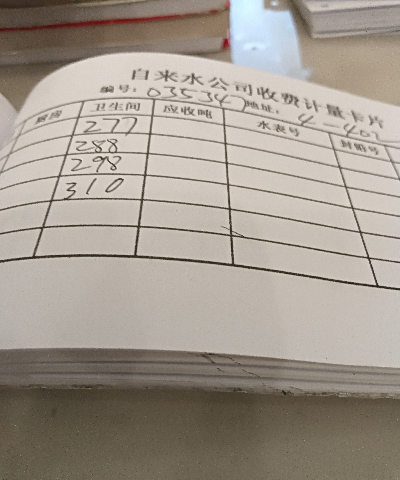 自来水公司收费计量卡片
编号: 035347 地址: 4-401
厨房 卫生间 应收吨 水表号 封铅号
277
288
298
310